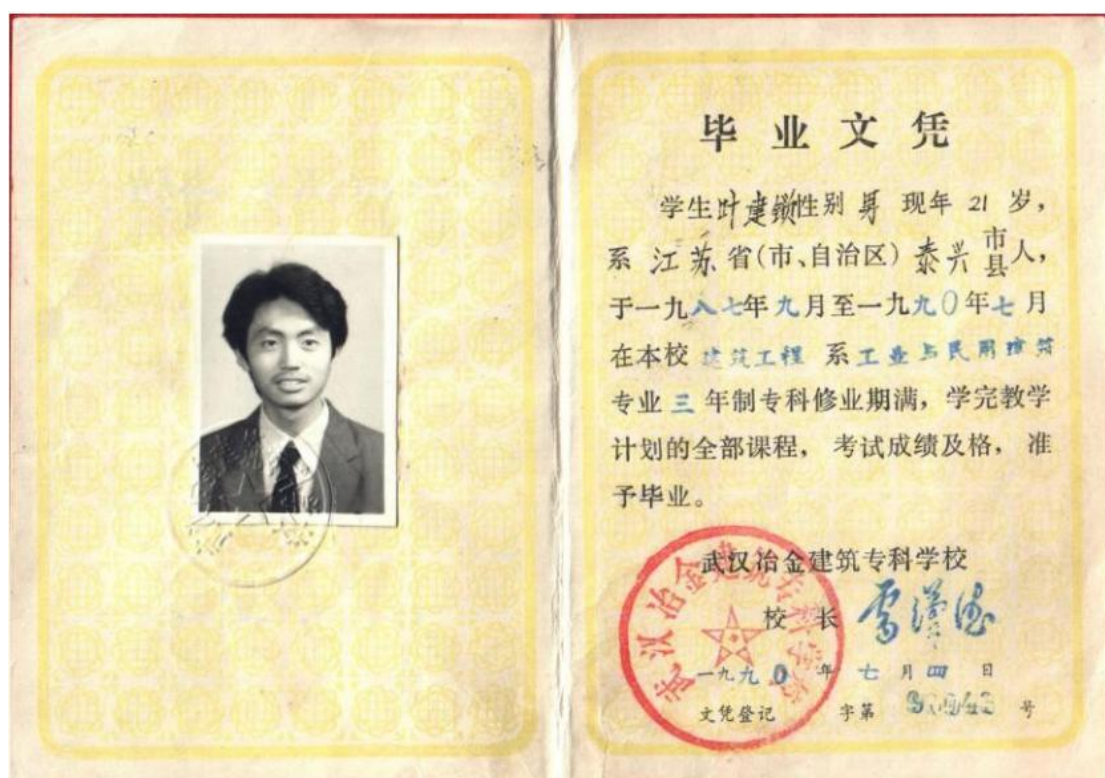 毕业文凭
学生叶建锁性别 男 现年 21 岁，
系 江苏 省(市、自治区) 泰兴 市县人，
于一九八七年九月至一九九0年七月
在本校 建筑工程 系 工业与民用建筑
专业 三 年制专科修业期满，学完教学
计划的全部课程， 考试成绩及格， 准
予毕业。
武汉冶金建筑专科学校
校 长
一九九0 年 七 月 四 日
文凭登记 字第 号
武汉冶金建筑专科学校